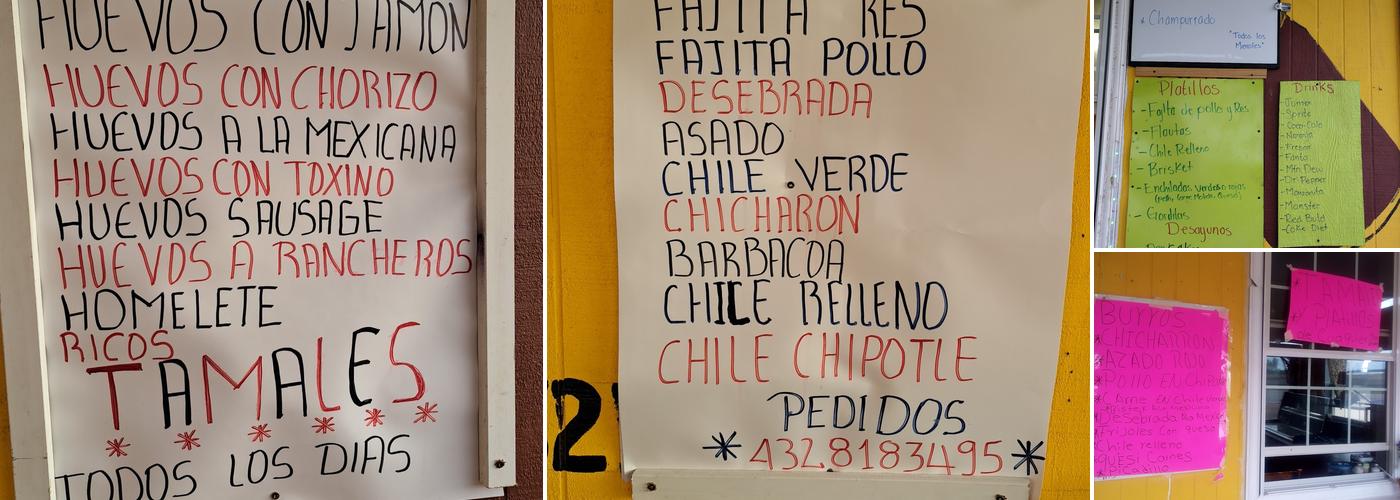 HUEVOS CON JAMON
HUEVOS CON CHORIZO
HUEVOS A LA MEXICANA
HUEVOS CON TOXINO
HUEVOS SAUSAGE
HUEVOS A RANCHEROS
HOMELETE
RICOS
TAMALES
TODOS LOS DIAS
FAJITA RES
FAJITA POLLO
DESEBRADA
ASADO
CHILE VERDE
CHICHARON
BARBACOA
CHILE RELLENO
CHILE CHIPOTLE
PEDIDOS
* 432 8183495 *
2
* Champurrado
"Todos los
Platillos
- Fajita de pollo y Res
- Flautas
- Chile Relleno
- Brisket
- Enchiladas verdes o rojas
- Gorditas
Desayunos
Drinks
- Sprite
- Coca-Cola
- Naranja
- Fresca
- Fanta
- Mtn Dew
- Dr Pepper
- Manzanita
- Monster
- Red Bull
- Coke Diet
BURROS
* CHICHARRON
* AZADO ROJO
* POLLO EN Chipotle
* Carne En Chile
Desebrada
Frijoles Con queso
Chile relleno
* Picadillo